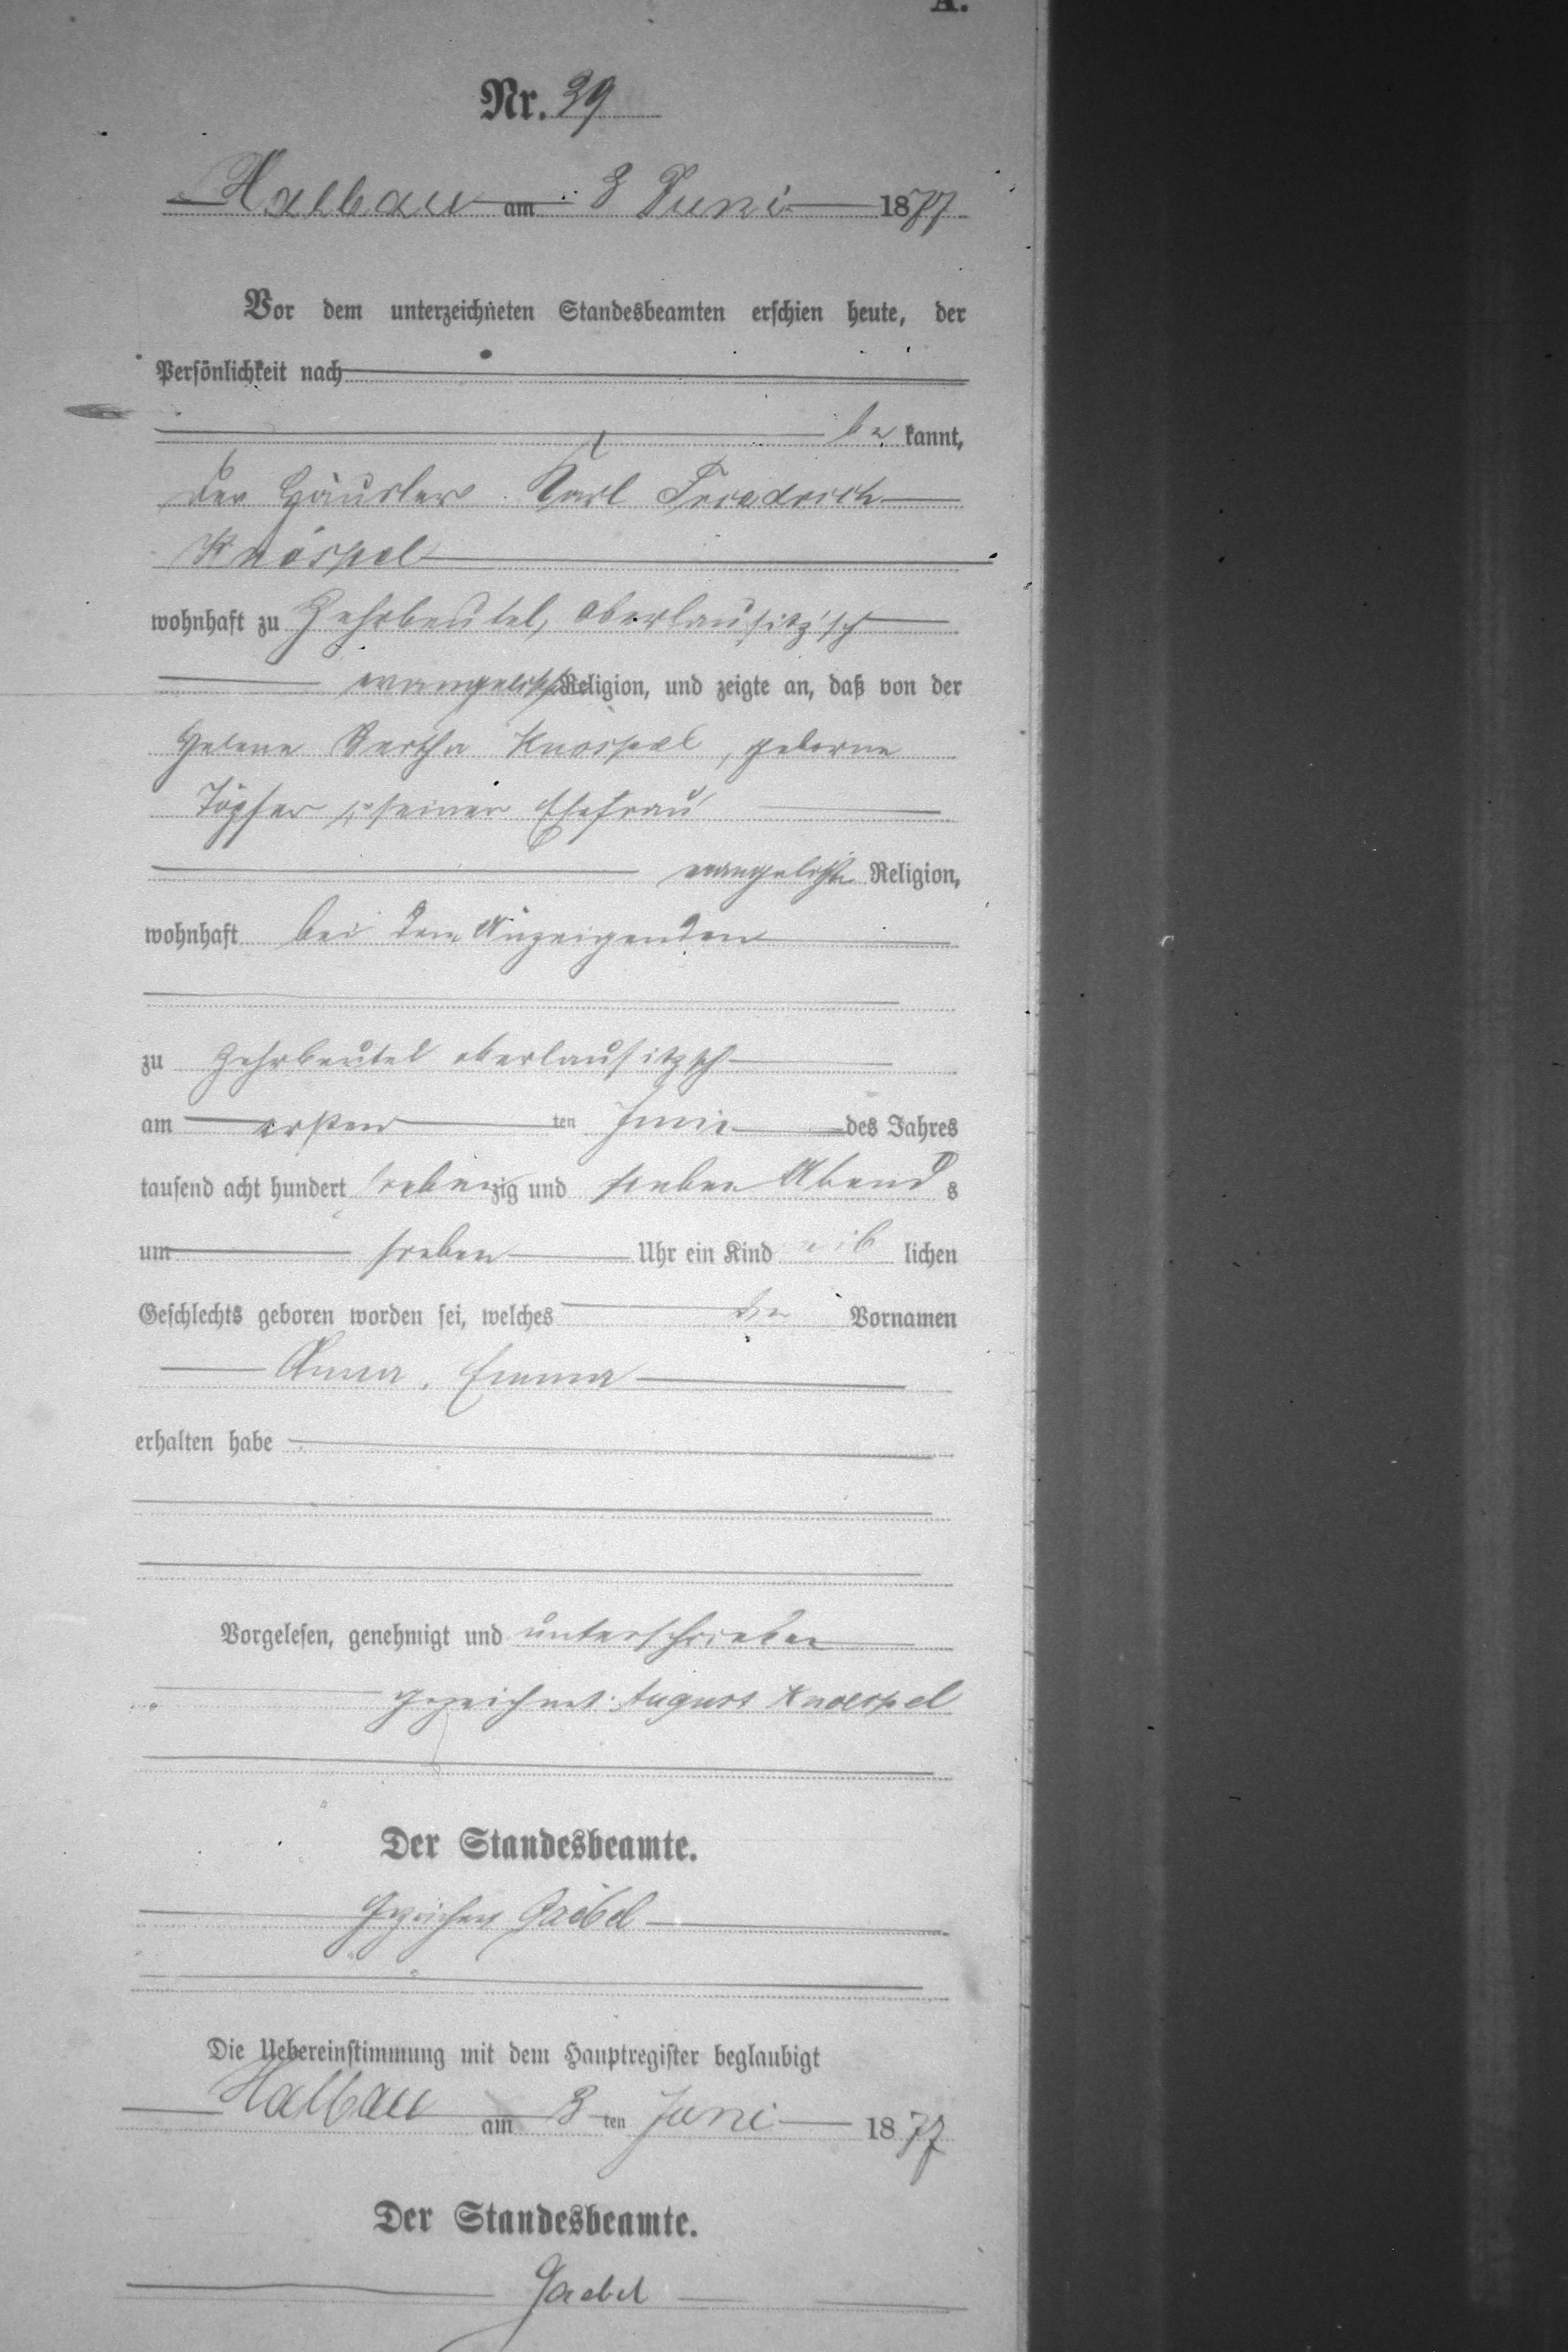 A.
Nr. 39
Halbau am 3 Juni 1877
Vor dem unterzeichneten Standesbeamten erschien heute, der
Persönlichkeit nach
be kannt,
der Häusler Karl Friedrich
Knöspel
wohnhaft zu Zehrbeutel, oberlausitz'sch
evangelischer Religion, und zeigte an, daß von der
Helene Bertha Knoespel, geborne
Töpfer seiner Ehefrau
evangelischer Religion,
wohnhaft bei dem Anzeigenden
zu Zehrbeutel oberlausitzsch
am ersten ten Juni des Jahres
tausend acht hundert siebenzig und sieben Abend s
um sieben Uhr ein Kind weib lichen
Geschlechts geboren worden sei, welches die Vornamen
Anna, Emma
erhalten habe
Vorgelesen, genehmigt und unterschrieben
gezeichnet August Knoespel
Der Standesbeamte.
gezeichnet Gaebel
Die Uebereinstimmung mit dem Hauptregister beglaubigt
Halbau am 3 ten Juni 1877
Der Standesbeamte.
Gaebel